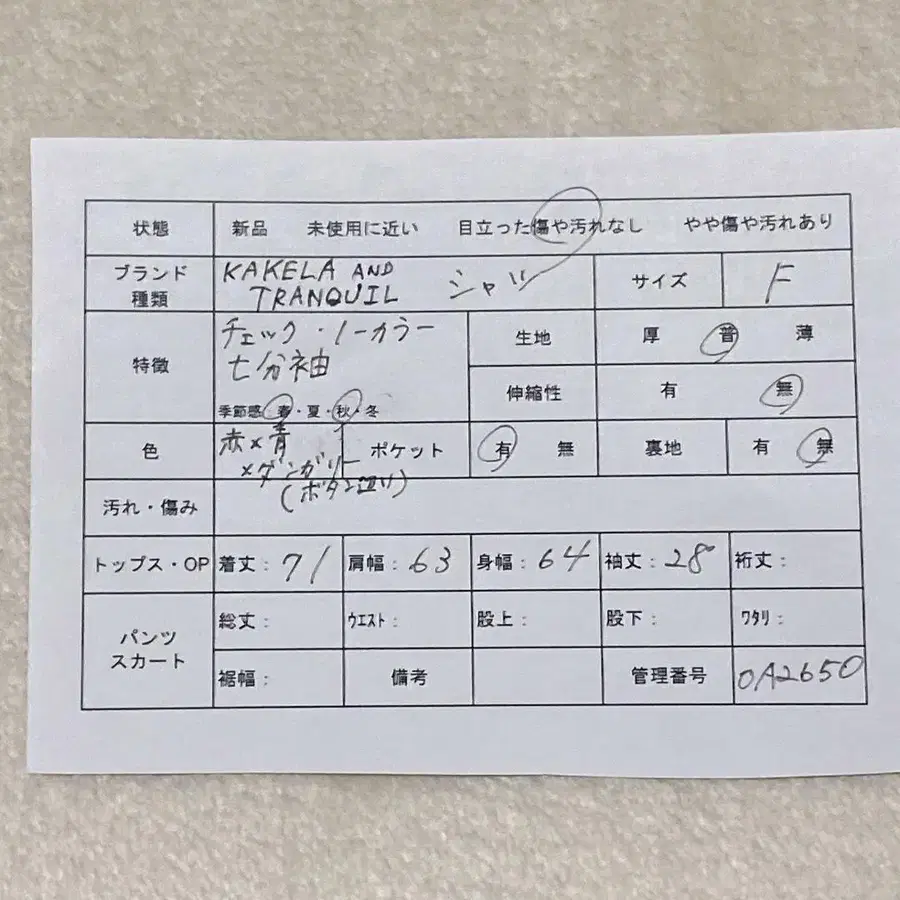 状態 新品 未使用に近い 目立った傷や汚れなし やや傷や汚れあり
ブランド 種類 KAKELA AND TRANQUIL シャツ サイズ F
特徴 チェック・ノーカラー 七分袖
季節感 春・夏・秋・冬
生地 厚 普 薄
伸縮性 有 無
色 赤×青 ×ダンガリー (ボタン辺り)
ポケット 有 無 裏地 有 無
汚れ・傷み
トップス・OP 着丈: 71 肩幅: 63 身幅: 64 袖丈: 28 裄丈:
パンツ スカート 総丈: ウエスト: 股上: 股下: ワタリ:
裾幅: 備考 管理番号 OA2650